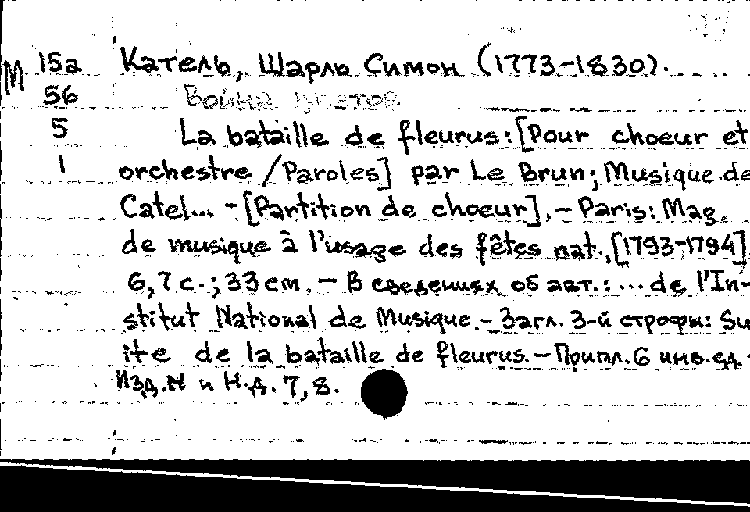 М 15а Катель, Шарль Симон (1773-1830).
56 Война цветов
5 La bataille de fleurus: [Pour choeur et
1 orchestre / Paroles] par Le Brun; Musique de
Catel... - [Partition de choeur]. - Paris: Mag.
de musique à l'usage des fêtes nat., [1793-1794]
6,7 с.; 33 см. - В сведениях об авт.: ... de l'In-
stitut National de Musique. - Загл. 3-й строфы: Su
ite de la bataille de fleurus. - Припл. 6 инв. ед.
Изд. № и Н.д. 7,8.